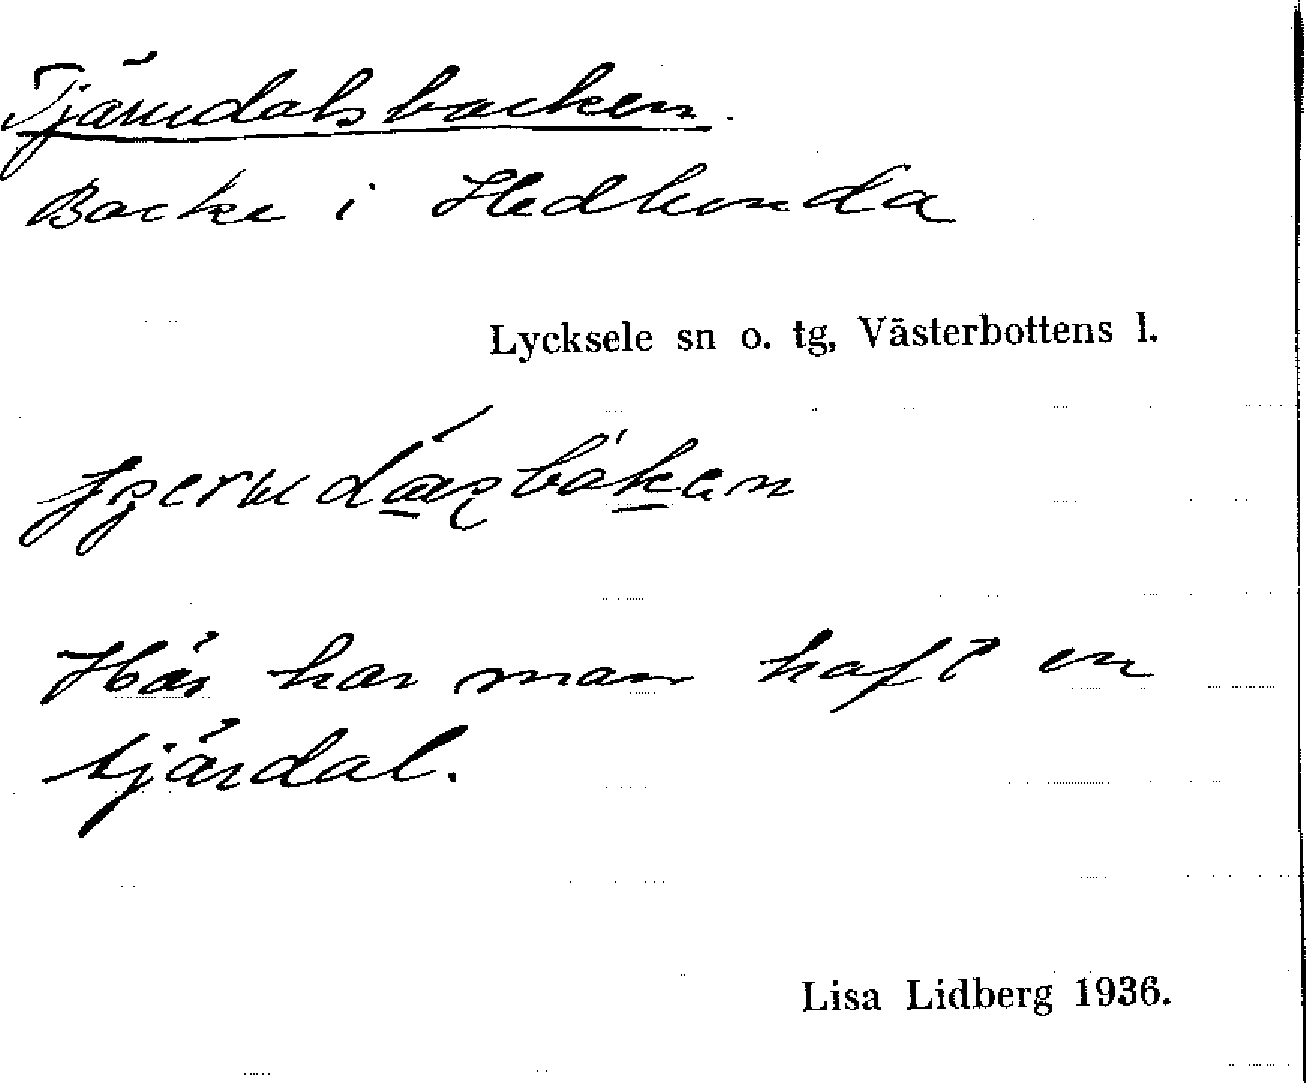 Tjärudalsbacken.
Backe i Hedlunda
Lycksele sn o. tg, Västerbottens l.
Här har man haft en
tjärdal.
Lisa Lidberg 1936.